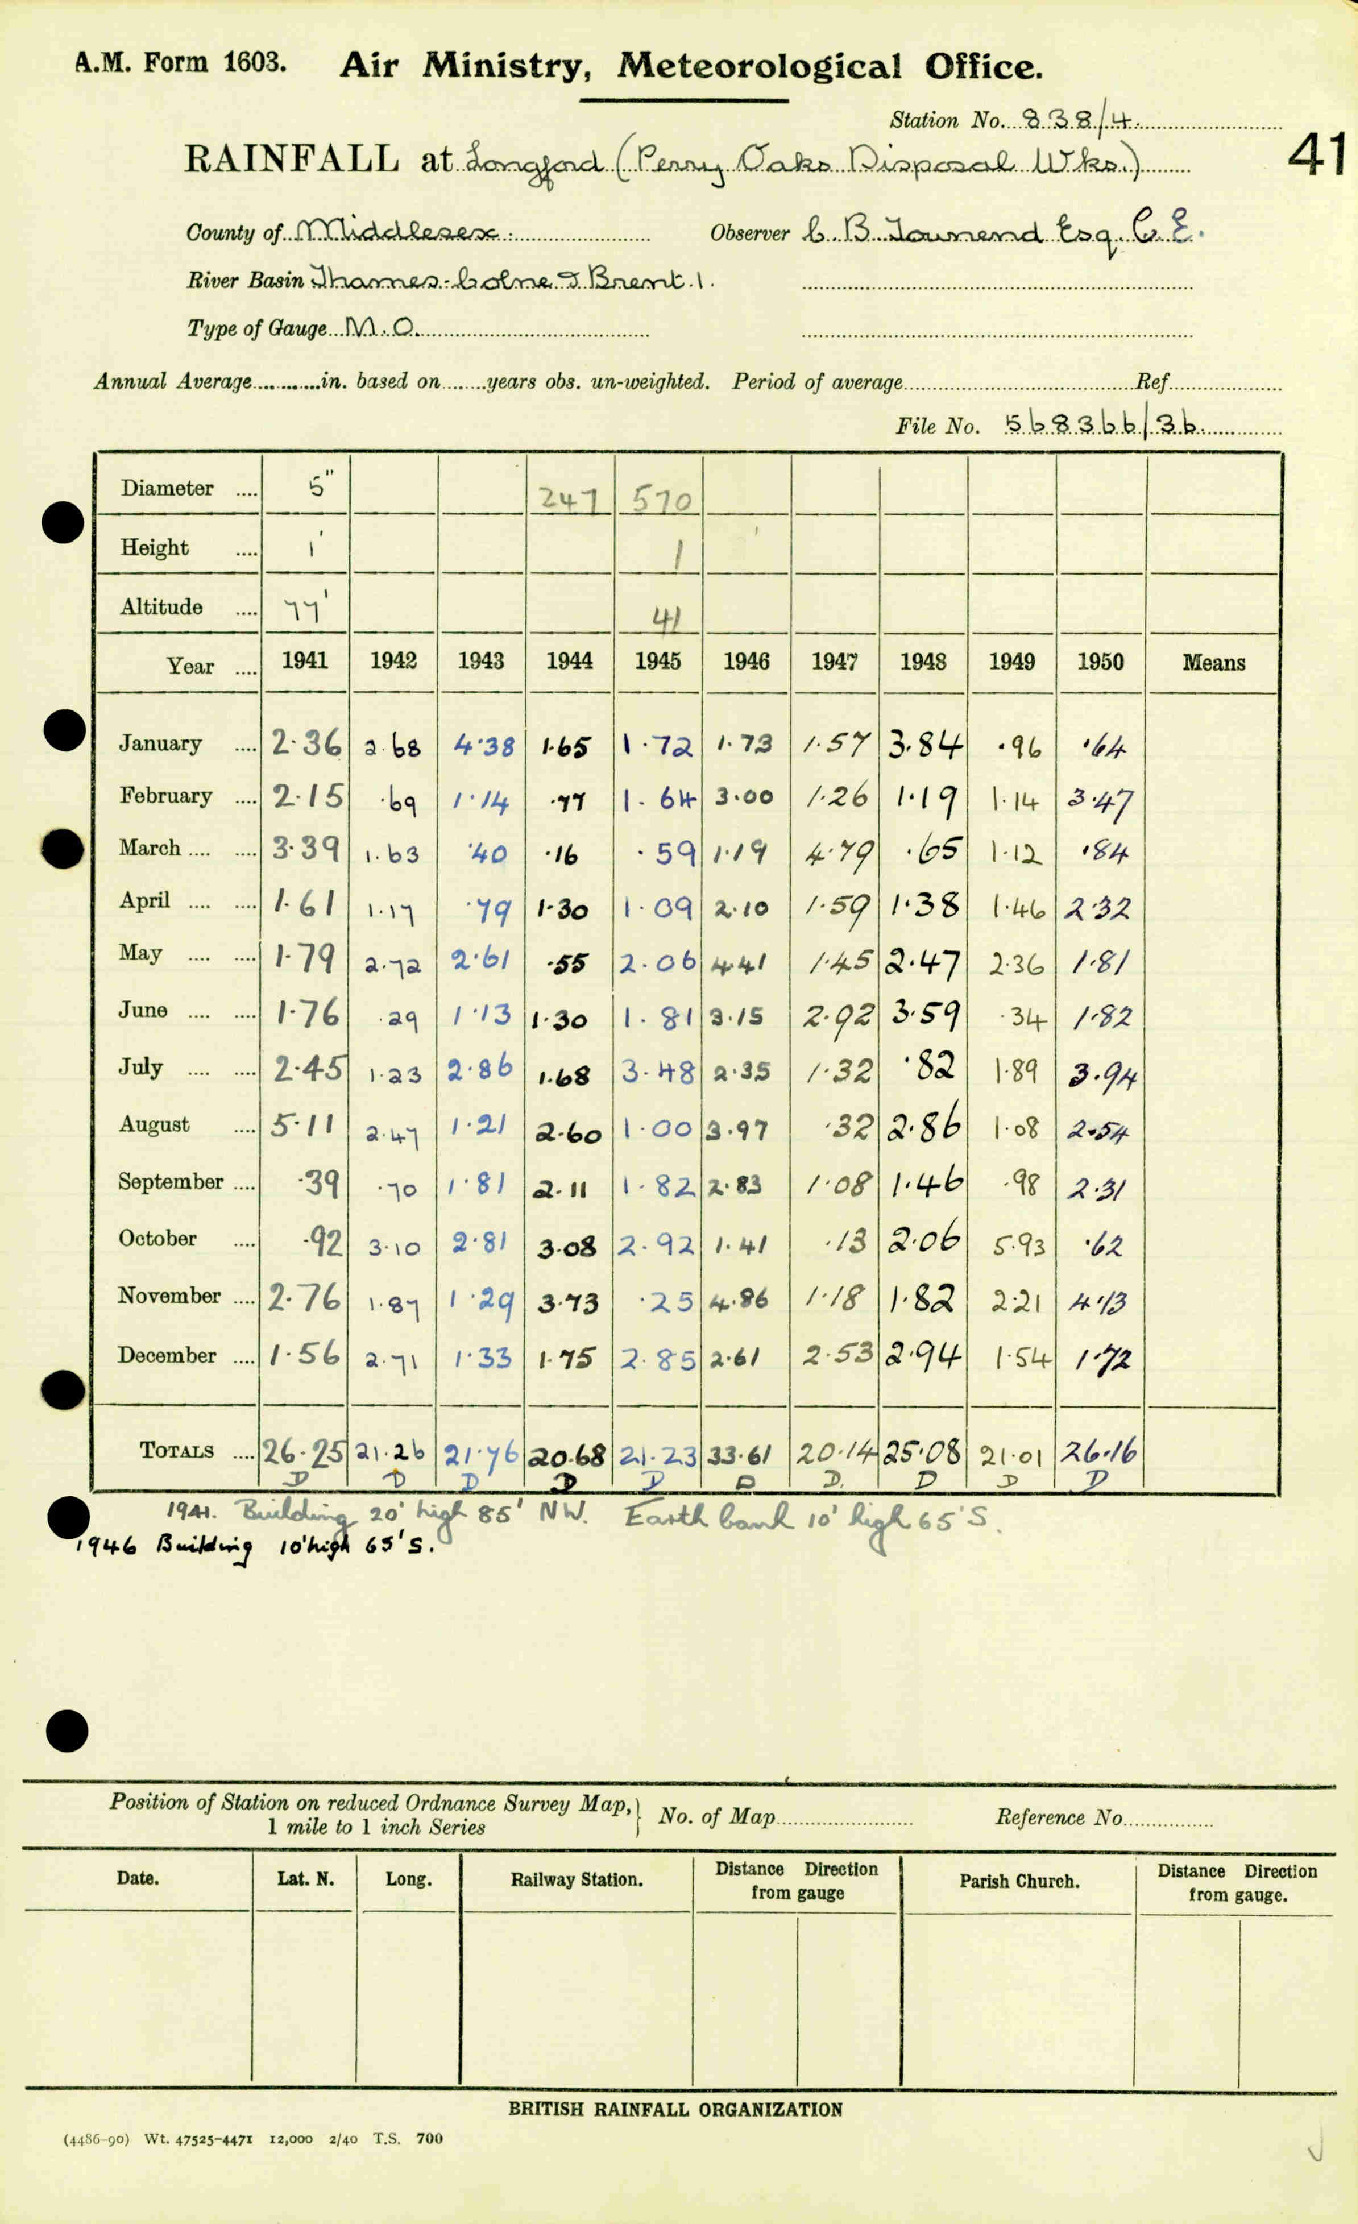 A.M. Form 1603. Air Ministry, Meteorological Office.
Station No. 838/4
41
RAINFALL at Longford (Perry Oaks Disposal Wks.)
County of Middlesex. Observer C. B. Townend Esq. C.E.
River Basin Thames-Colne & Brent 1.
Type of Gauge M.O.
Annual Average in. based on years obs. un-weighted. Period of average Ref.
File No. 568366/36
Diameter .... 5" 247 570
Height .... 1' 1
Altitude .... 77' 41
Year .... 1941 1942 1943 1944 1945 1946 1947 1948 1949 1950 Means
January .... 2.36 2.68 4.38 1.65 1.72 1.73 1.57 3.84 .96 .64
February .... 2.15 .69 1.14 .77 1.64 3.00 1.26 1.19 1.14 3.47
March .... .... 3.39 1.63 .40 .16 .59 1.19 4.79 .65 1.12 .84
April .... .... 1.61 1.17 .79 1.30 1.09 2.10 1.59 1.38 1.46 2.32
May .... .... 1.79 2.72 2.61 .55 2.06 4.41 1.45 2.47 2.36 1.81
June .... .... 1.76 .29 1.13 1.30 1.81 3.15 2.92 3.59 .34 1.82
July .... .... 2.45 1.23 2.86 1.68 3.48 2.35 1.32 .82 1.89 3.94
August .... 5.11 2.47 1.21 2.60 1.00 3.97 .32 2.86 1.08 2.54
September .... .39 .70 1.81 2.11 1.82 2.83 1.08 1.46 .98 2.31
October .... .92 3.10 2.81 3.08 2.92 1.41 .13 2.06 5.93 .62
November .... 2.76 1.87 1.29 3.73 .25 4.86 1.18 1.82 2.21 4.13
December .... 1.56 2.71 1.33 1.75 2.85 2.61 2.53 2.94 1.54 1.72
TOTALS .... 26.25 21.26 21.76 20.68 21.23 33.61 20.14 25.08 21.01 26.16
D D D D D D D. D D D
1941. Building 20' high 85' NW. Earth bank 10' high 65' S.
1946 Building 10' high 65' S.
Position of Station on reduced Ordnance Survey Map, 1 mile to 1 inch Series } No. of Map Reference No.
Date. Lat. N. Long. Railway Station. Distance Direction from gauge Parish Church. Distance Direction from gauge.
BRITISH RAINFALL ORGANIZATION
(4486-90) Wt. 47525-4471 12,000 2/40 T.S. 700